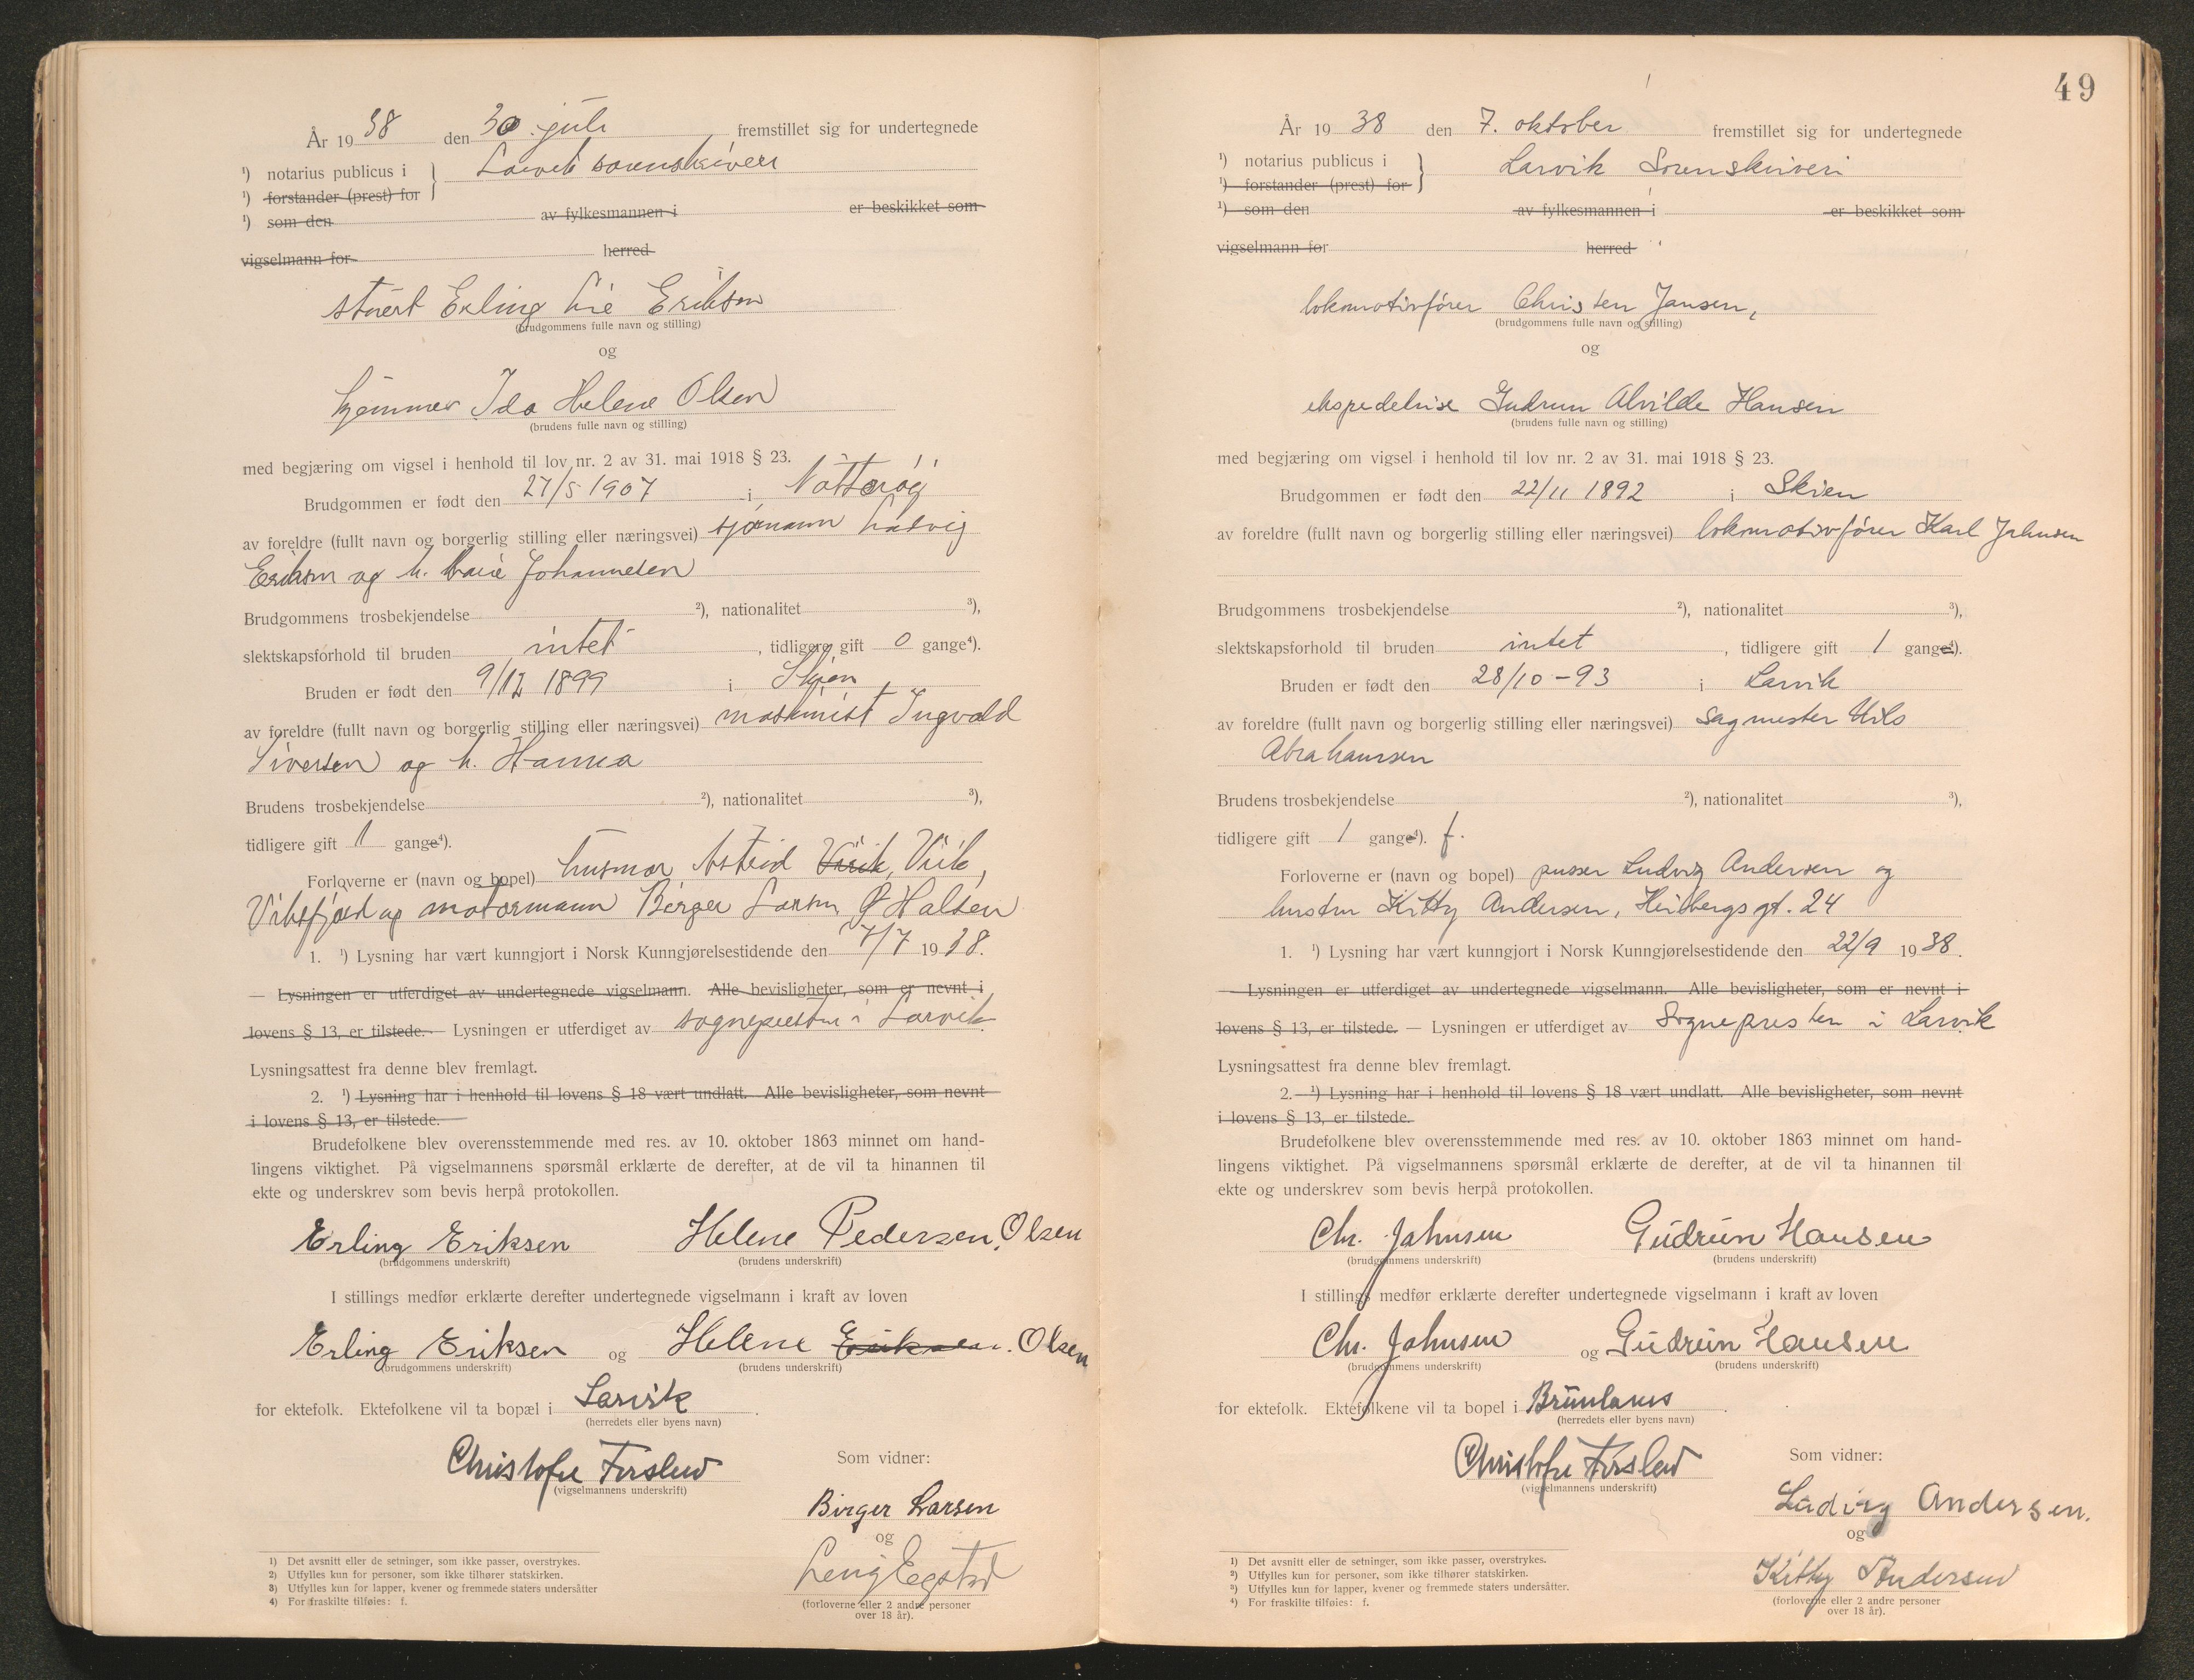 År 19 38 den 30 juli fremstillet sig for undertegnede
¹) notarius publicus i } Larvik sorenskriveri
¹) forstander (prest) for
¹) som den av fylkesmannen i er beskikket som
vigselmann for herred
stuert Erling Lie Eriksen
(brudgommens fulle navn og stilling)
og
hjemmev Ida Helene Olsen
(brudens fulle navn og stilling)
med begjæring om vigsel i henhold til lov nr. 2 av 31. mai 1918 § 23.
Brudgommen er født den 27/5 1907 i Nøtterøy
av foreldre (fullt navn og borgerlig stilling eller næringsvei) sjømann Ludvig
Eriksen og h. Marie Johannesen
Brudgommens trosbekjendelse ²), nationalitet ³),
slektskapsforhold til bruden intet , tidligere gift 0 gange⁴).
Bruden er født den 9/12 1899 i Skien
av foreldre (fullt navn og borgerlig stilling eller næringsvei) maskinist Ingvald
Sivertsen og h. Hanna
Brudens trosbekjendelse ²), nationalitet ³),
tidligere gift 1 gange⁴).
Forloverne er (navn og bopel) husmor Astrid Virik, Viik,
Viksfjord og motormann Birger Larsen Ø Halsen
1. ¹) Lysning har vært kunngjort i Norsk Kunngjørelsestidende den 7/7 19 38.
— Lysningen er utferdiget av undertegnede vigselmann. Alle bevisligheter, som er nevnt i
lovens § 13, er tilstede. — Lysningen er utferdiget av sognepresten i Larvik
Lysningsattest fra denne blev fremlagt.
2. ¹) Lysning har i henhold til lovens § 18 vært undlatt. Alle bevisligheter, som nevnt
i lovens § 13, er tilstede.
Brudefolkene blev overensstemmende med res. av 10. oktober 1863 minnet om hand-
lingens viktighet. På vigselmannens spørsmål erklærte de derefter, at de vil ta hinannen til
ekte og underskrev som bevis herpå protokollen.
Erling Eriksen Helene Pedersen, Olsen
(brudgommens underskrift) (brudens underskrift)
I stillings medfør erklærte derefter undertegnede vigselmann i kraft av loven
Erling Eriksen og Helene Eriksen. Olsen
(brudgommens underskrift) (brudens underskrift)
for ektefolk. Ektefolkene vil ta bopæl i Larvik .
(herredets eller byens navn)
Christofer Forslew
(vigselmannens underskrift)
Som vidner:
Birger Larsen
og
(forloverne eller 2 andre personer
over 18 år).
1) Det avsnitt eller de setninger, som ikke passer, overstrykes.
2) Utfylles kun for personer, som ikke tilhører statskirken.
3) Utfylles kun for lapper, kvener og fremmede staters undersåtter
4) For fraskilte tilføies: f.
49
År 19 38 den 7. oktober fremstillet sig for undertegnede
¹) notarius publicus i } Larvik Sorenskriveri
¹) forstander (prest) for
¹) som den av fylkesmannen i er beskikket som
vigselmann for herred
lokomotivfører Christen Jansen,
(brudgommens fulle navn og stilling)
og
ekspedetrise Gudrun Alvilde Hansen
(brudens fulle navn og stilling)
med begjæring om vigsel i henhold til lov nr. 2 av 31. mai 1918 § 23.
Brudgommen er født den 22/11 1892 i Skien
av foreldre (fullt navn og borgerlig stilling eller næringsvei) lokomotivfører Karl Jahnsen
Brudgommens trosbekjendelse ²), nationalitet ³),
slektskapsforhold til bruden intet , tidligere gift 1 gange⁴).
Bruden er født den 28/10 - 93 i Larvik
av foreldre (fullt navn og borgerlig stilling eller næringsvei) Sagmester Nils
Abrahamsen
Brudens trosbekjendelse ²), nationalitet ³),
tidligere gift 1 gange⁴). f.
Forloverne er (navn og bopel) pusser Ludvig Andersen og
hustru Kitty Andersen, Heibergsgt. 24
1. ¹) Lysning har vært kunngjort i Norsk Kunngjørelsestidende den 22/9 19 38.
— Lysningen er utferdiget av undertegnede vigselmann. Alle bevisligheter, som er nevnt i
lovens § 13, er tilstede. — Lysningen er utferdiget av Sognepresten i Larvik
Lysningsattest fra denne blev fremlagt.
2. ¹) Lysning har i henhold til lovens § 18 vært undlatt. Alle bevisligheter, som nevnt
i lovens § 13, er tilstede.
Brudefolkene blev overensstemmende med res. av 10. oktober 1863 minnet om hand-
lingens viktighet. På vigselmannens spørsmål erklærte de derefter, at de vil ta hinannen til
ekte og underskrev som bevis herpå protokollen.
Chr. Jahnsen Gudrun Hansen
(brudgommens underskrift) (brudens underskrift)
I stillings medfør erklærte derefter undertegnede vigselmann i kraft av loven
Chr. Jahnsen og Gudrun Hansen
(brudgommens underskrift) (brudens underskrift)
for ektefolk. Ektefolkene vil ta bopel i Brunlanes .
(herredets eller byens navn)
Christofer Forslew
(vigselmannens underskrift)
Som vidner:
Ludvig Andersen.
og
Kitty Andersen
(forloverne eller 2 andre personer
over 18 år).
¹) Det avsnitt eller de setninger, som ikke passer, overstrykes.
²) Utfylles kun for personer, som ikke tilhører statskirken.
³) Utfylles kun for lapper, kvener og fremmede staters undersåtter.
⁴) For fraskilte tilføies: f.